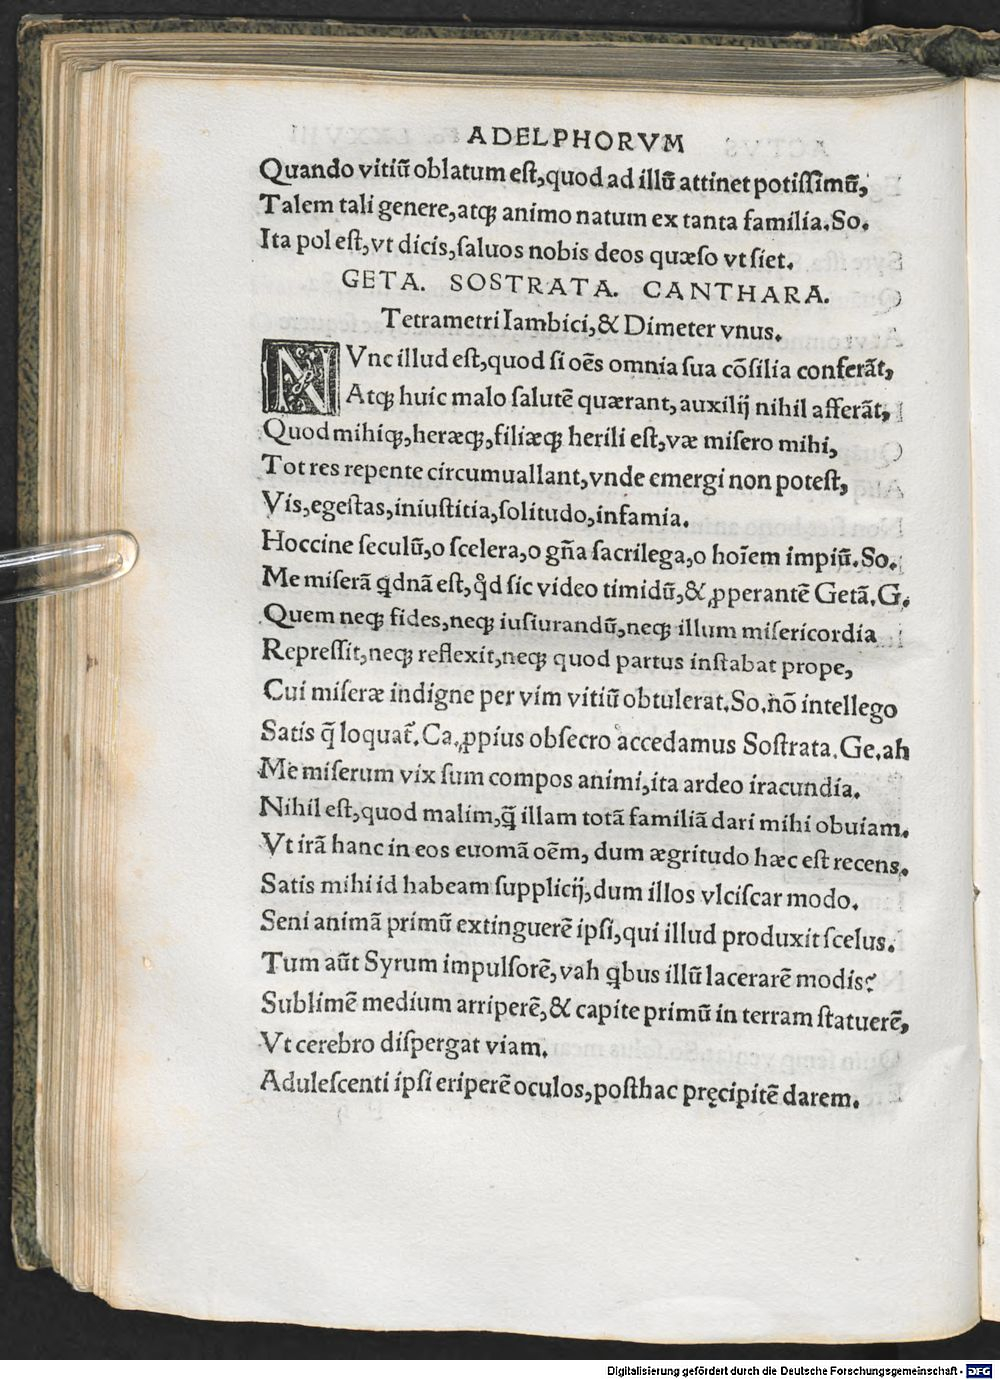 ADELPHORVM
Quando vitiū oblatum eſt,quod ad illū attinet potiſſimū,
Talem tali genere,atqꝫ animo natum ex tanta familia.So.
Ita pol eſt,vt dicis,ſaluos nobis deos quæſo vt ſiet.
GETA. SOSTRATA. CANTHARA.
Tetrametri Iambici,& Dimeter vnus.
NVnc illud eſt,quod ſi oēs omnia ſua cōſilia conferāt,
Atqꝫ huic malo ſalutē quærant,auxilij nihil afferāt,
Quod mihiqꝫ,heræqꝫ,filiæqꝫ herili eſt,væ miſero mihi,
Tot res repente circumuallant,vnde emergi non poteſt,
Vis,egeſtas,iniuſtitia,ſolitudo,infamia.
Hoccine ſeculū,o ſcelera,o gña ſacrilega,o hoīem impiū.So.
Me miſerā qͥdnā eſt,qͥd ſic video timidū,& ꝓperantē Getā.G.
Quem neqꝫ fides,neqꝫ iuſiurandū,neqꝫ illum miſericordia
Repreſſit,neqꝫ reflexit,neqꝫ quod partus inſtabat prope,
Cui miſeræ indigne per vim vitiū obtulerat.So.nō intellego
Satis q̄ loquat᷑.Ca.ꝓpius obſecro accedamus Soſtrata.Ge.ah
Me miſerum vix ſum compos animi,ita ardeo iracundia.
Nihil eſt,quod malim,q̄ illam totā familiā dari mihi obuiam.
Vt irā hanc in eos euomā oēm, dum ægritudo hæc eſt recens.
Satis mihi id habeam ſupplicij,dum illos vlciſcar modo.
Seni animā primū extinguerē ipſi,qui illud produxit ſcelus.
Tum aūt Syrum impulſorē,vah qͥbus illū lacerarē modis?
Sublimē medium arriperē,& capite primū in terram ſtatuerē,
Vt cerebro diſpergat viam.
Aduleſcenti ipſi eriperē oculos,poſthac pręcipitē darem.
Digitalisierung gefördert durch die Deutsche Forschungsgemeinschaft - DFG